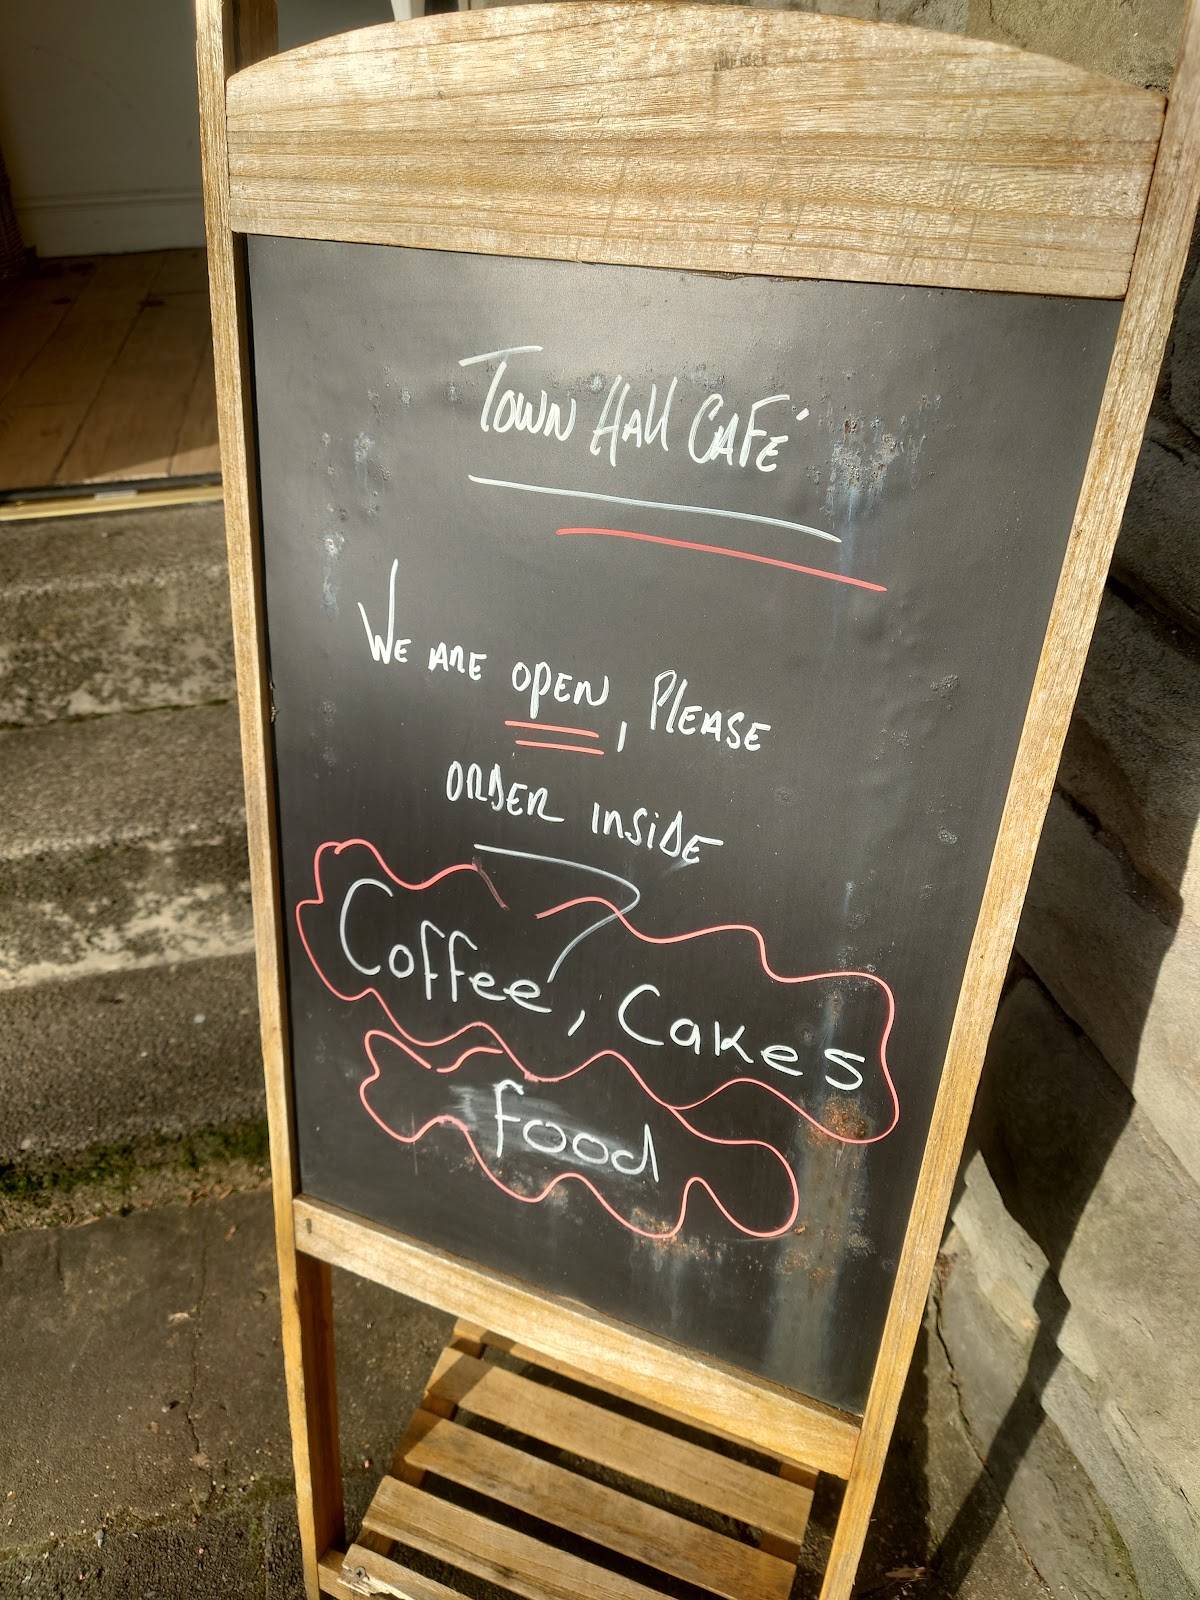 Town Hall Café
We are open, Please
order inside
Coffee, Cakes
food